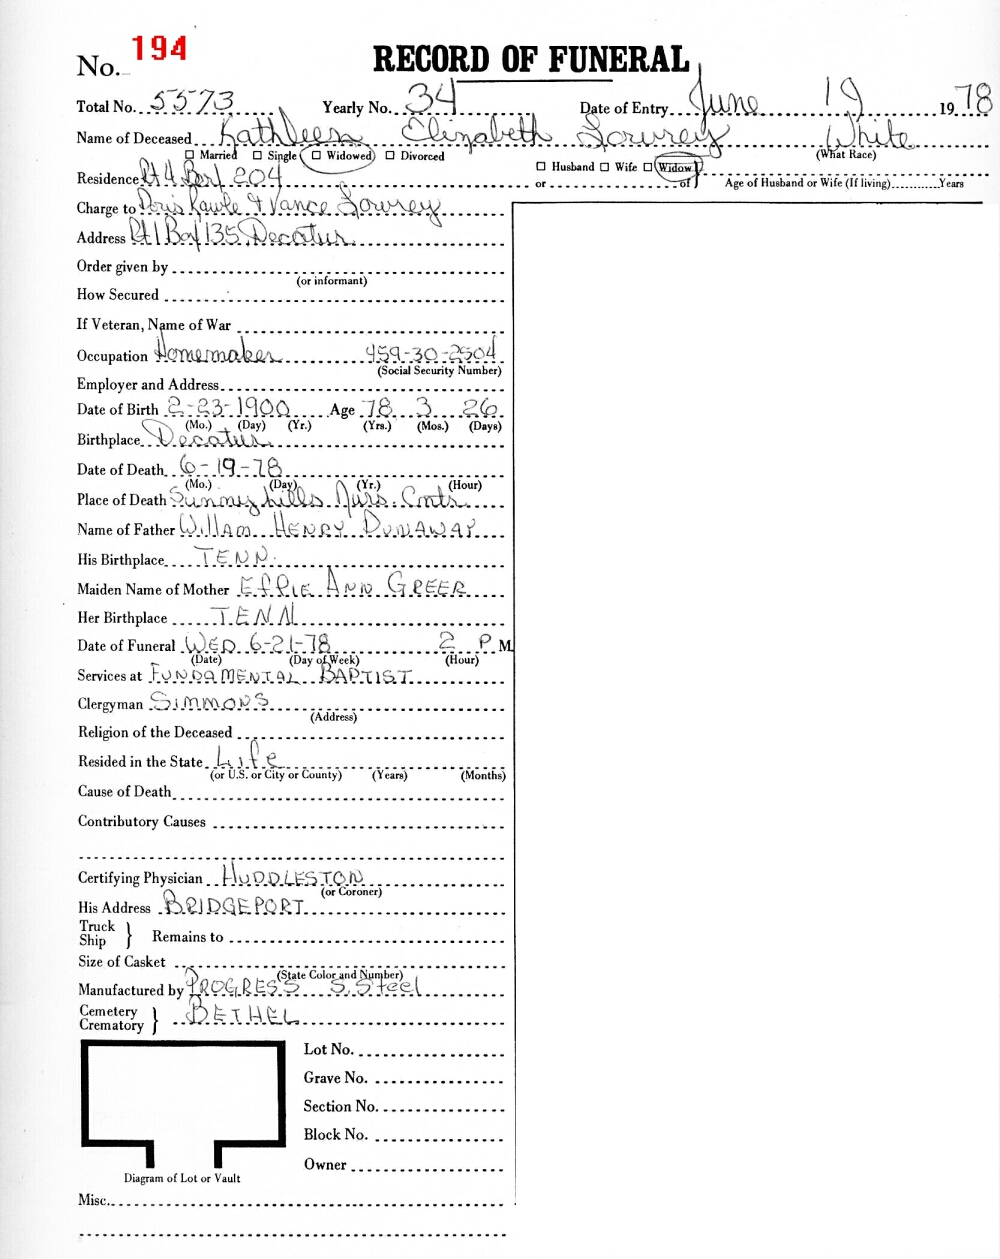 No. 194
RECORD OF FUNERAL
Total No. 5573 Yearly No. 34 Date of Entry June 19 1978
Name of Deceased Kathleen Elizabeth Lowrey White
☐ Married ☐ Single ☐ Widowed ☐ Divorced (What Race)
☐ Husband ☐ Wife ☐ Widow
Residence Rt 4 Box 204 or of Age of Husband or Wife (If living) Years
Charge to Doris Kawle & Vance Lowrey
Address Rt 1 Box 135 Decatur
Order given by
(or informant)
How Secured
If Veteran, Name of War
Occupation Homemaker 459-30-2504
(Social Security Number)
Employer and Address
Date of Birth 2-23-1900 Age 78 3 26
(Mo.) (Day) (Yr.) (Yrs.) (Mos.) (Days)
Birthplace Decatur
Date of Death 6-19-78
(Mo.) (Day) (Yr.) (Hour)
Place of Death Sunny hills Nurs.
Name of Father Willam HENRY DUNAWAY
His Birthplace TENN.
Maiden Name of Mother EffIE ANN GREER
Her Birthplace TENN
Date of Funeral WED 6-21-78 2 P M
(Date) (Day of Week) (Hour)
Services at FUNDAMENTAL BAPTIST
Clergyman SIMMONS
(Address)
Religion of the Deceased
Resided in the State Life
(or U.S. or City or County) (Years) (Months)
Cause of Death
Contributory Causes
Certifying Physician HUDDLESTON
(or Coroner)
His Address BRIDGEPORT
Truck
Ship } Remains to
Size of Casket
(State Color and Number)
Manufactured by PROGRESS S. Steel
Cemetery
Crematory } BETHEL
Lot No.
Grave No.
Section No.
Block No.
Owner
Diagram of Lot or Vault
Misc.